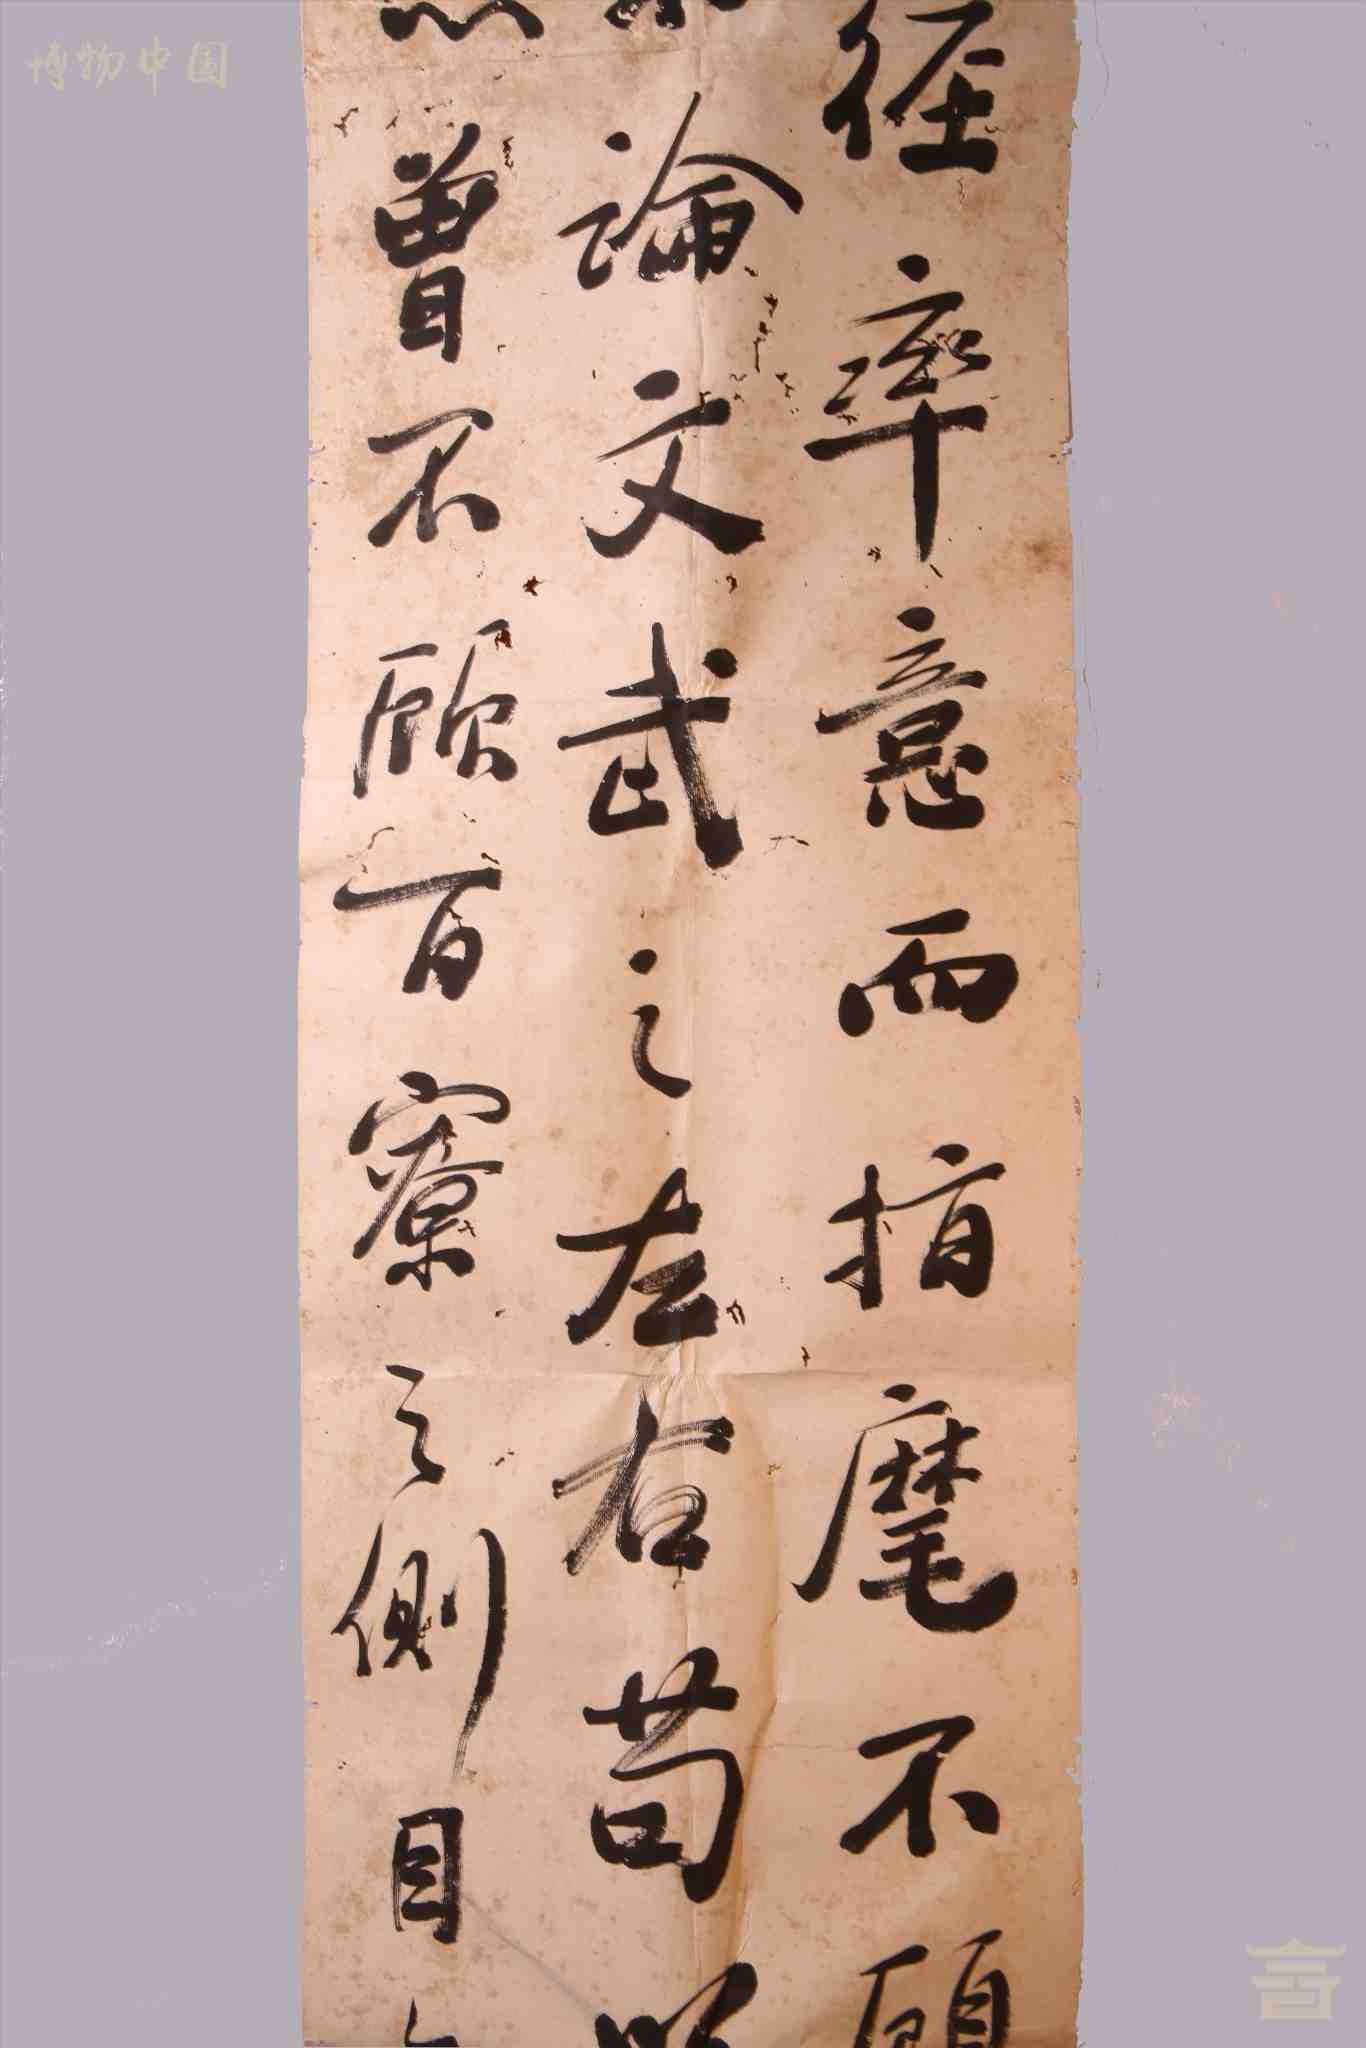 博物中国
徑率意而指麾不顧
論文武之左右苟
曾不顧百寮之側目